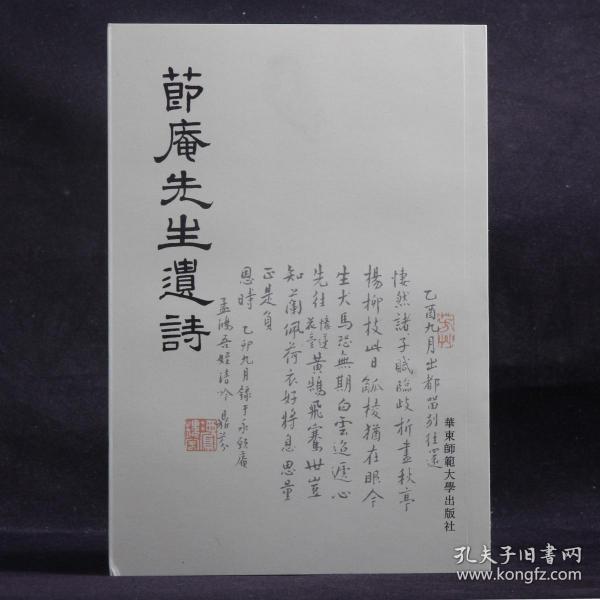 節庵先生遺詩
乙酉九月出都留別往還
悽然諸子賦臨歧折盡秋亭
楊柳枝此日觚棱猶在眼今
生犬馬恐無期白雲迢遞心
先往
黃鵠飛騫世豈
知蘭佩荷衣好將息思量
正是負
恩時
乙卯九月錄于永欽庵
孟鴻吾姪清吟 鼎芬
華東師範大學出版社
孔夫子旧书网
www.kongfz.com